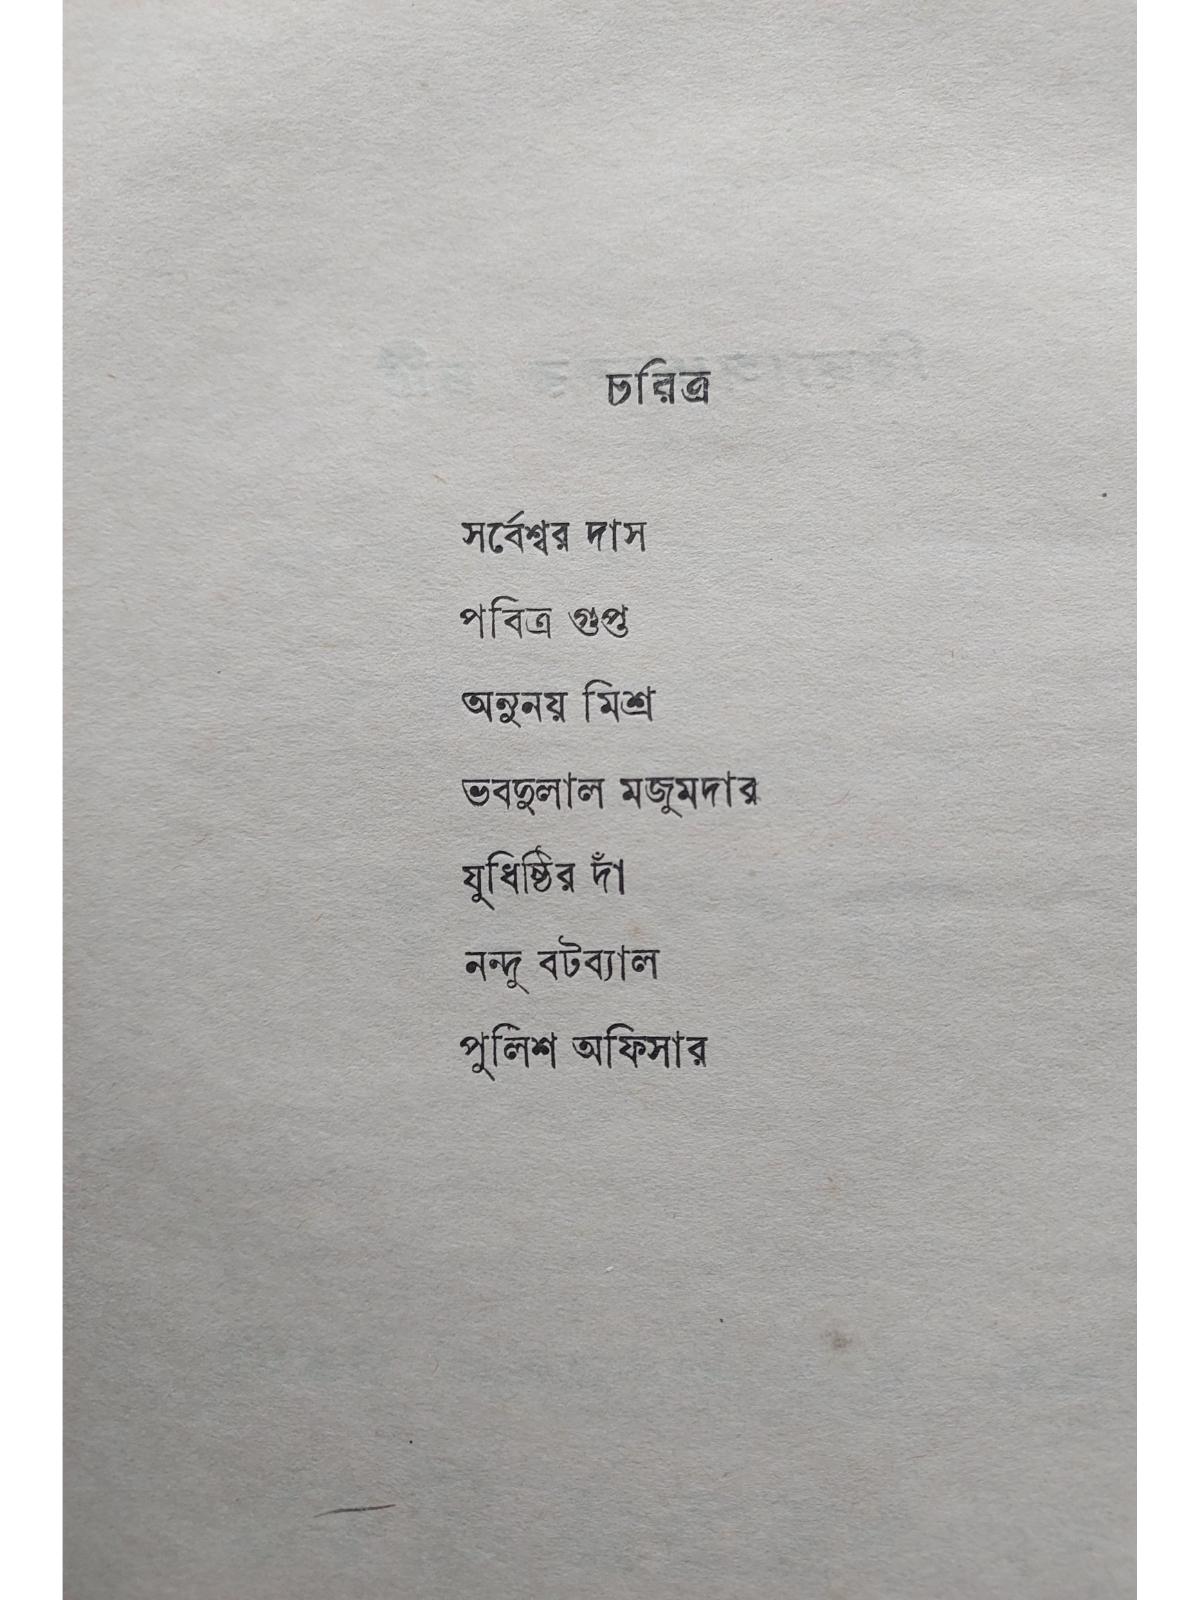 চরিত্র
সর্বেশ্বর দাস
পবিত্র গুপ্ত
অনুনয় মিশ্র
ভবদুলাল মজুমদার
যুধিষ্ঠির দাঁ
নন্দু বটব্যাল
পুলিশ অফিসার